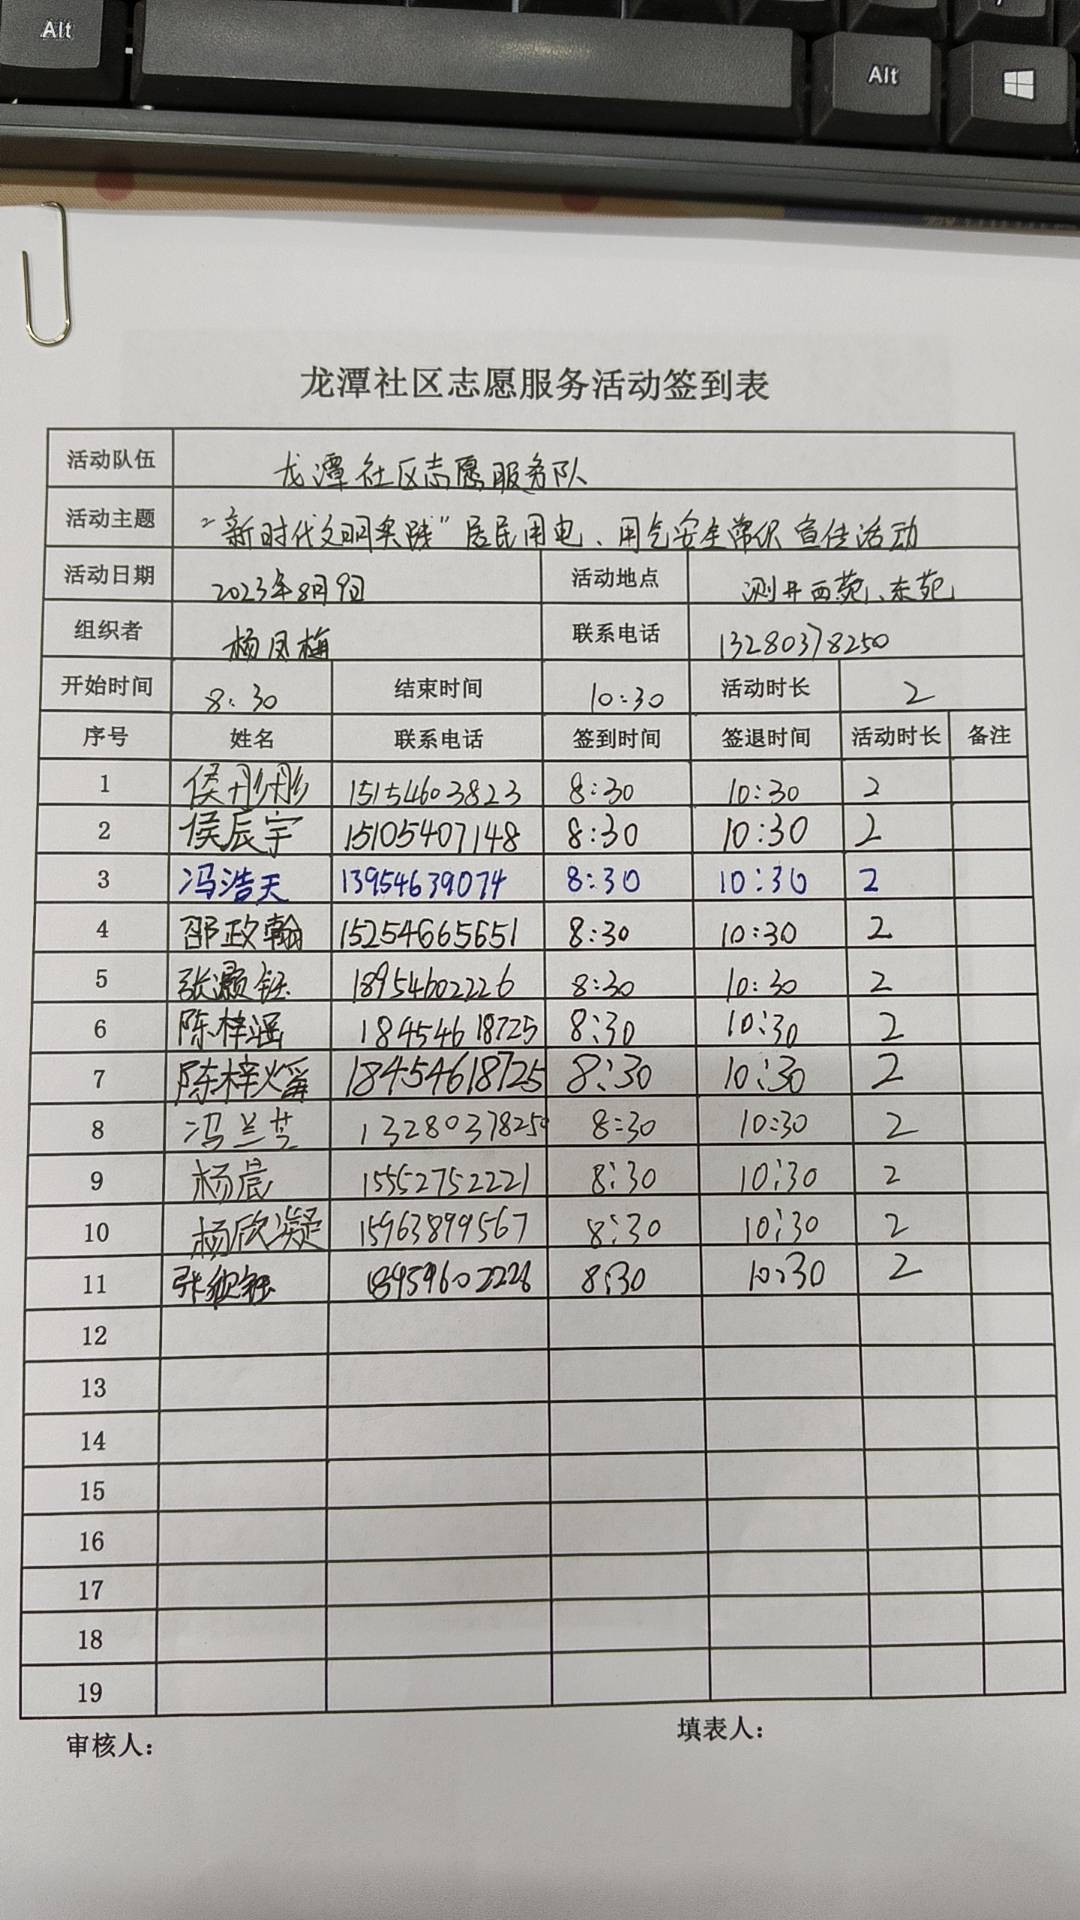 Alt
Alt
龙潭社区志愿服务活动签到表
活动队伍 龙潭社区志愿服务队
活动主题 “新时代文明实践”居民用电、用气安全常识宣传活动
活动日期 2023年8月9日 活动地点 测井西苑、东苑
组织者 杨凤梅 联系电话 13280378250
开始时间 8:30 结束时间 10:30 活动时长 2
序号 姓名 联系电话 签到时间 签退时间 活动时长 备注
1 侯彤彤 15154603823 8:30 10:30 2
2 侯辰宇 15105407148 8:30 10:30 2
3 冯浩天 13954639074 8:30 10:30 2
4 邵政翰 15254665651 8:30 10:30 2
5 张灏钰 18954602226 8:30 10:30 2
6 陈梓涵 18454618725 8:30 10:30 2
7 陈梓熠 18454618725 8:30 10:30 2
8 冯兰芝 13280378250 8:30 10:30 2
9 杨晨 15552752221 8:30 10:30 2
10 杨欣凝 15963899567 8:30 10:30 2
11 8:30 10:30 2
12
13
14
15
16
17
18
19
审核人： 填表人：